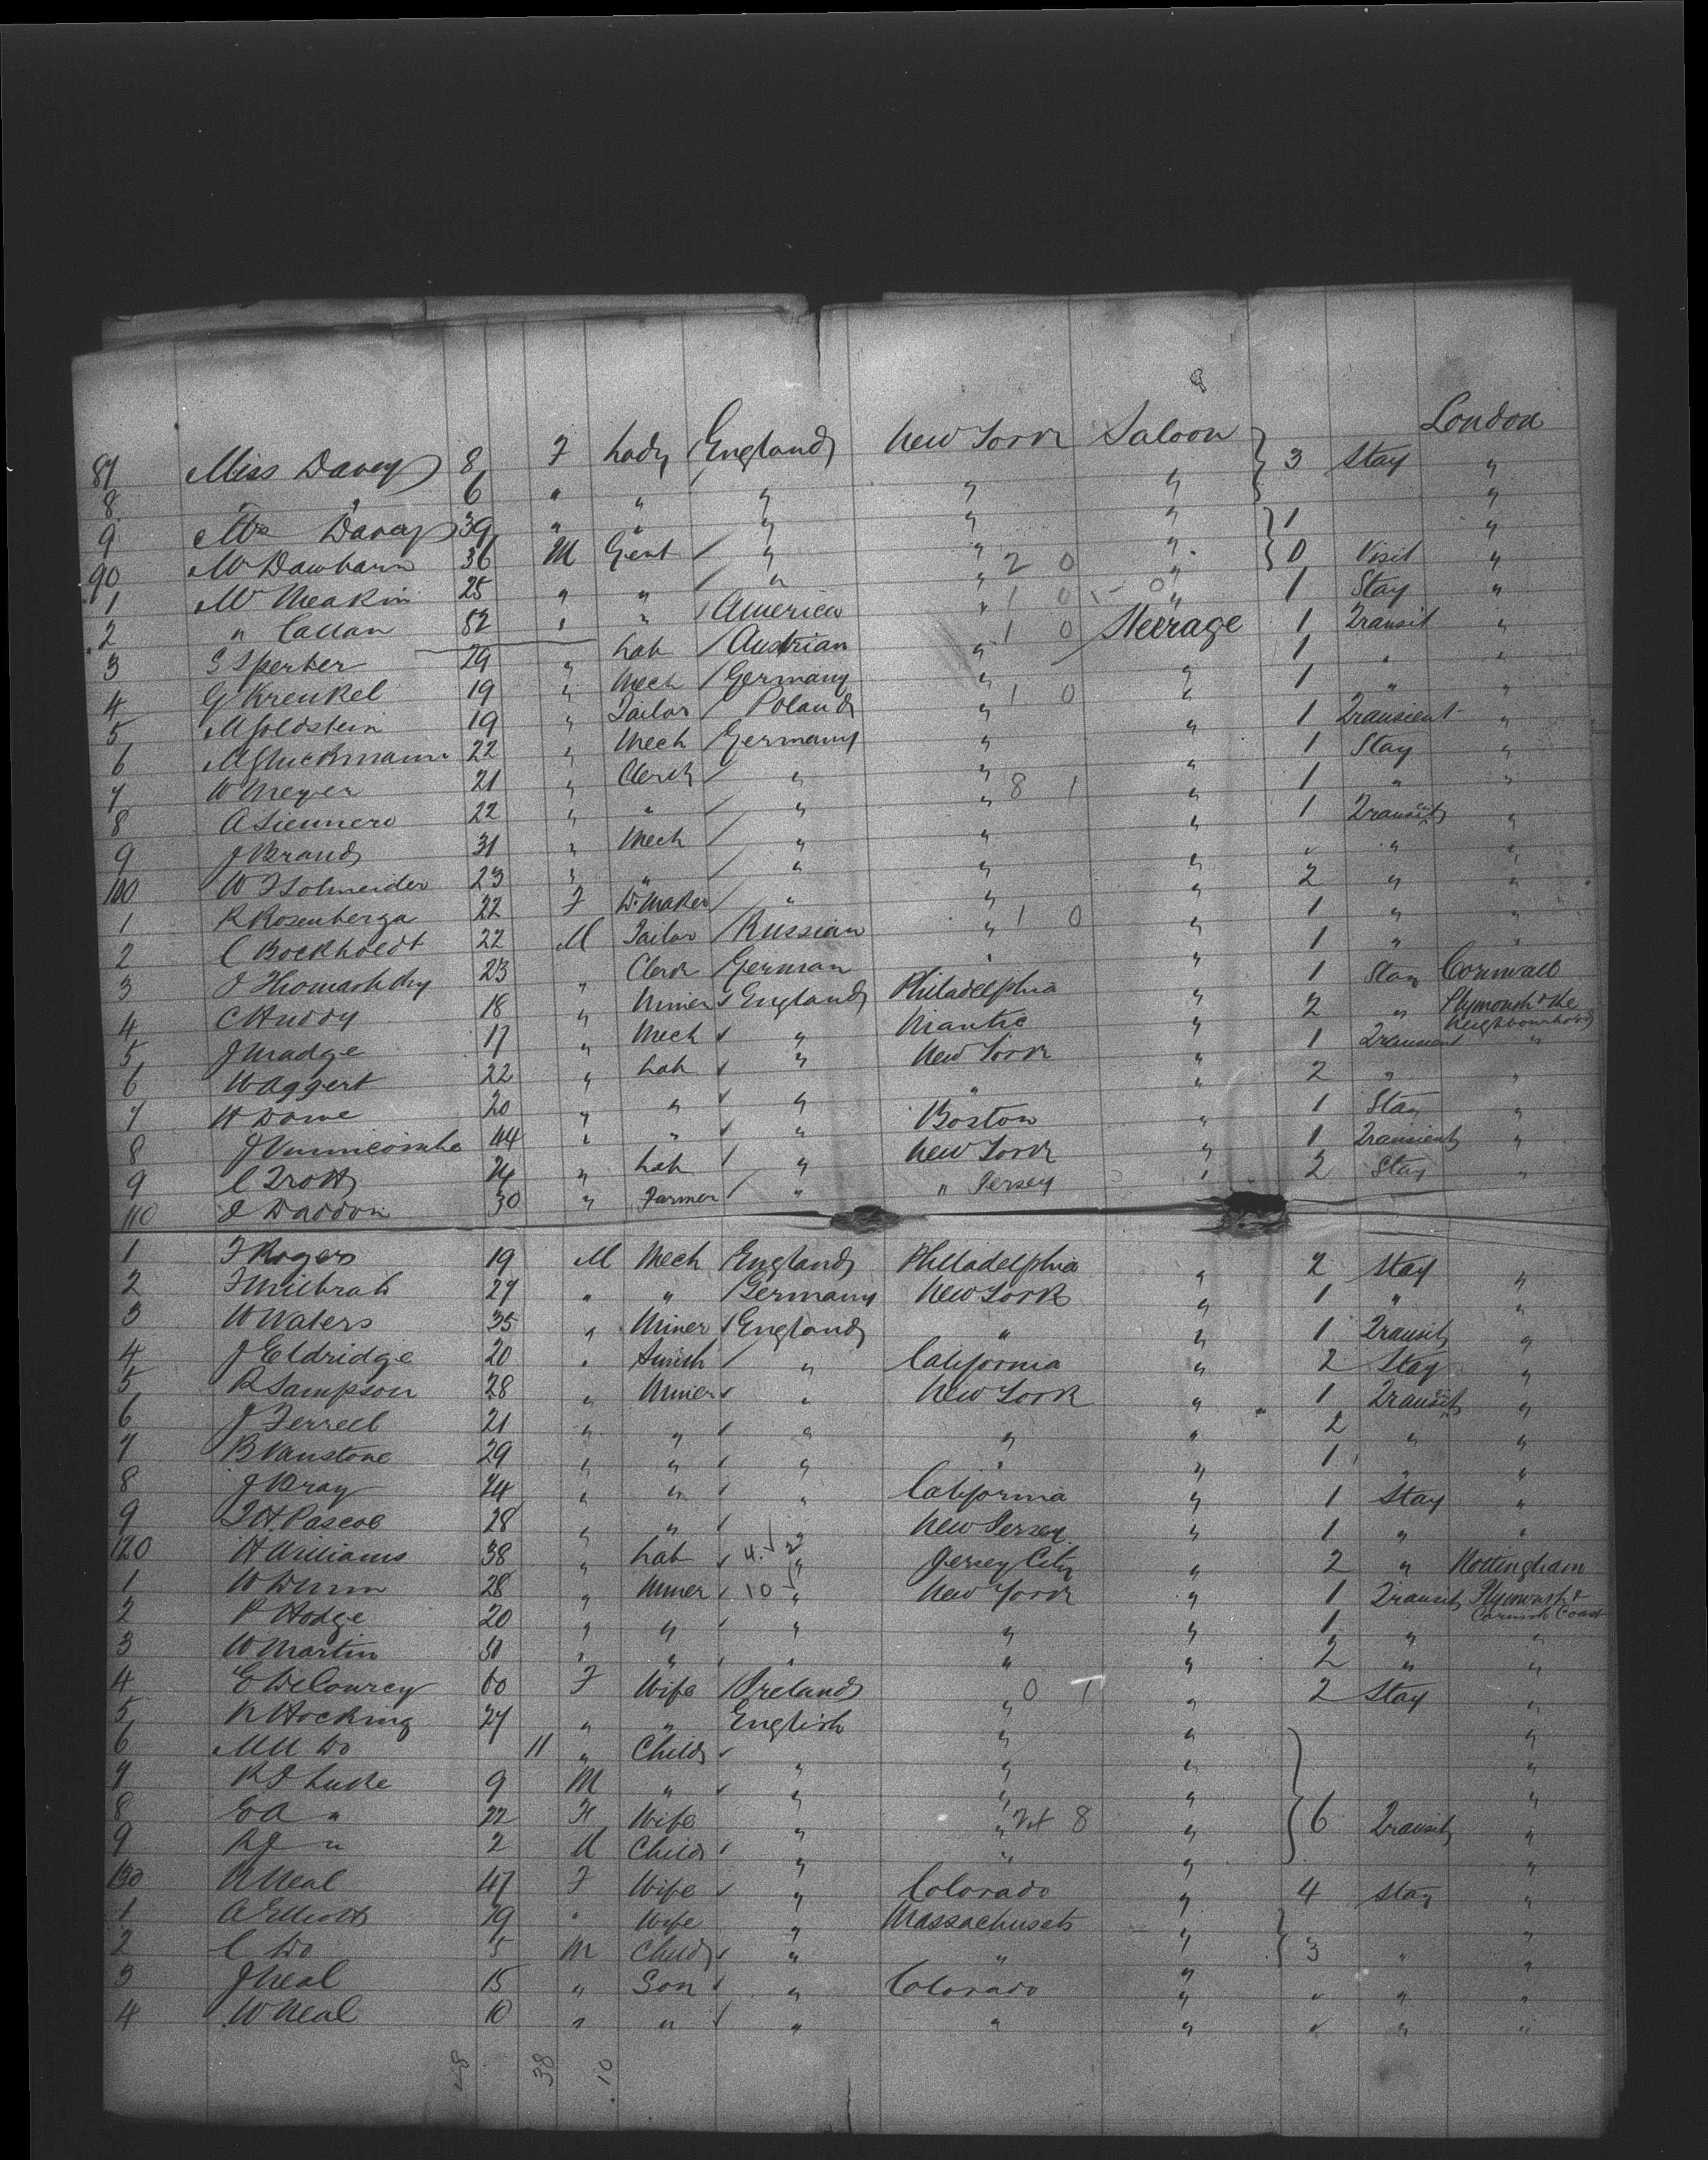 8
87 Miss Davey 8 F Lady England New York Saloon 3 Stay London
8 " " 6 " " " " " "
9 Mrs Davey 39 " " " " " 1 "
90 Mr Dawbarn 36 M Gent " " 2 0 " 0 Visit "
1 Mr Meakin 25 " " " " 1 0 " 1 Stay "
2 " Callan 52 " " America " 1 0 Steerage 1 Transit "
3 S Sperber 29 " Lab Austrian " " 1 " "
4 G Krenkel 19 " Mech Germany " 1 0 " 1 " "
5 M Goldstein 19 " Tailor Poland " " 1 Transient "
6 M Gluckmann 22 " Mech Germany " " 1 Stay "
7 W Meyer 21 " Clerk " " 8 1 " 1 " "
8 22 " " " " " 1 Transit "
9 J Brand 31 " Mech " " " " "
100 W F 23 " " " " " 2 " "
1 R Rosenberga 22 F D. Maker " " 1 0 " 1 " "
2 C Bockholdt 22 M Tailor Russian " " 1 " "
3 J 23 " Clerk German " " 1 Stay Cornwall
4 C Huddy 18 " Miner England Philadelphia " 2 " Plymouth & the neighbourhood
5 J Madge 17 " Mech " Niantic " 1 Transient "
6 W Aggert 22 " Lab " New York " 2 " "
7 H Dowe 20 " " " " " 1 Stay "
8 J Vinnicombe 44 " " " Boston " 1 Transient "
9 C Trott 24 " Lab " New York " 2 Stay "
110 J Daddow 30 " Farmer " " Jersey "
1 F Rogers 19 M Mech England Philadelphia " 2 Stay "
2 27 " " Germany New York " 1 " "
3 W Waters 35 " Miner England " " 1 Transit "
4 J Eldridge 20 " Smith " California " 2 Stay "
5 R Sampson 28 " Miner " New York " 1 Transit "
6 J Ferrell 21 " " " " " 2 " "
7 B Vanstone 29 " " " " " 1 " "
8 J Bray 24 " " " California " 1 Stay "
9 T H Pascoe 28 " " " New Jersey " 1 " "
120 H Williams 38 " Lab 4 2 " Jersey City " 2 " Nottingham
1 W Dunn 28 " Miner 10 " New York " 1 Transit Plymouth & Cornish Coast
2 P Hodge 20 " " " " " 1 " "
3 W Martin 50 " " " " " 2 " "
4 E DeCourcy 60 F Wife Ireland " 0 1 " 2 Stay "
5 R Hocking 27 " " English " " "
6 M M Do 11 " Child " " " "
7 R J Luke 9 M " " " " "
8 E A " 22 F Wife " " 24 8 " 6 Transit "
9 R J " 2 M Child " " " "
130 N Neal 47 F Wife " Colorado " 4 Stay "
1 A Elliott 29 " Wife " Massachusets " "
2 C Do 5 M Child " " " 3 " "
3 J Neal 15 " Son " Colorado " " "
4 W Neal 10 " " " " " " "
48 38 10